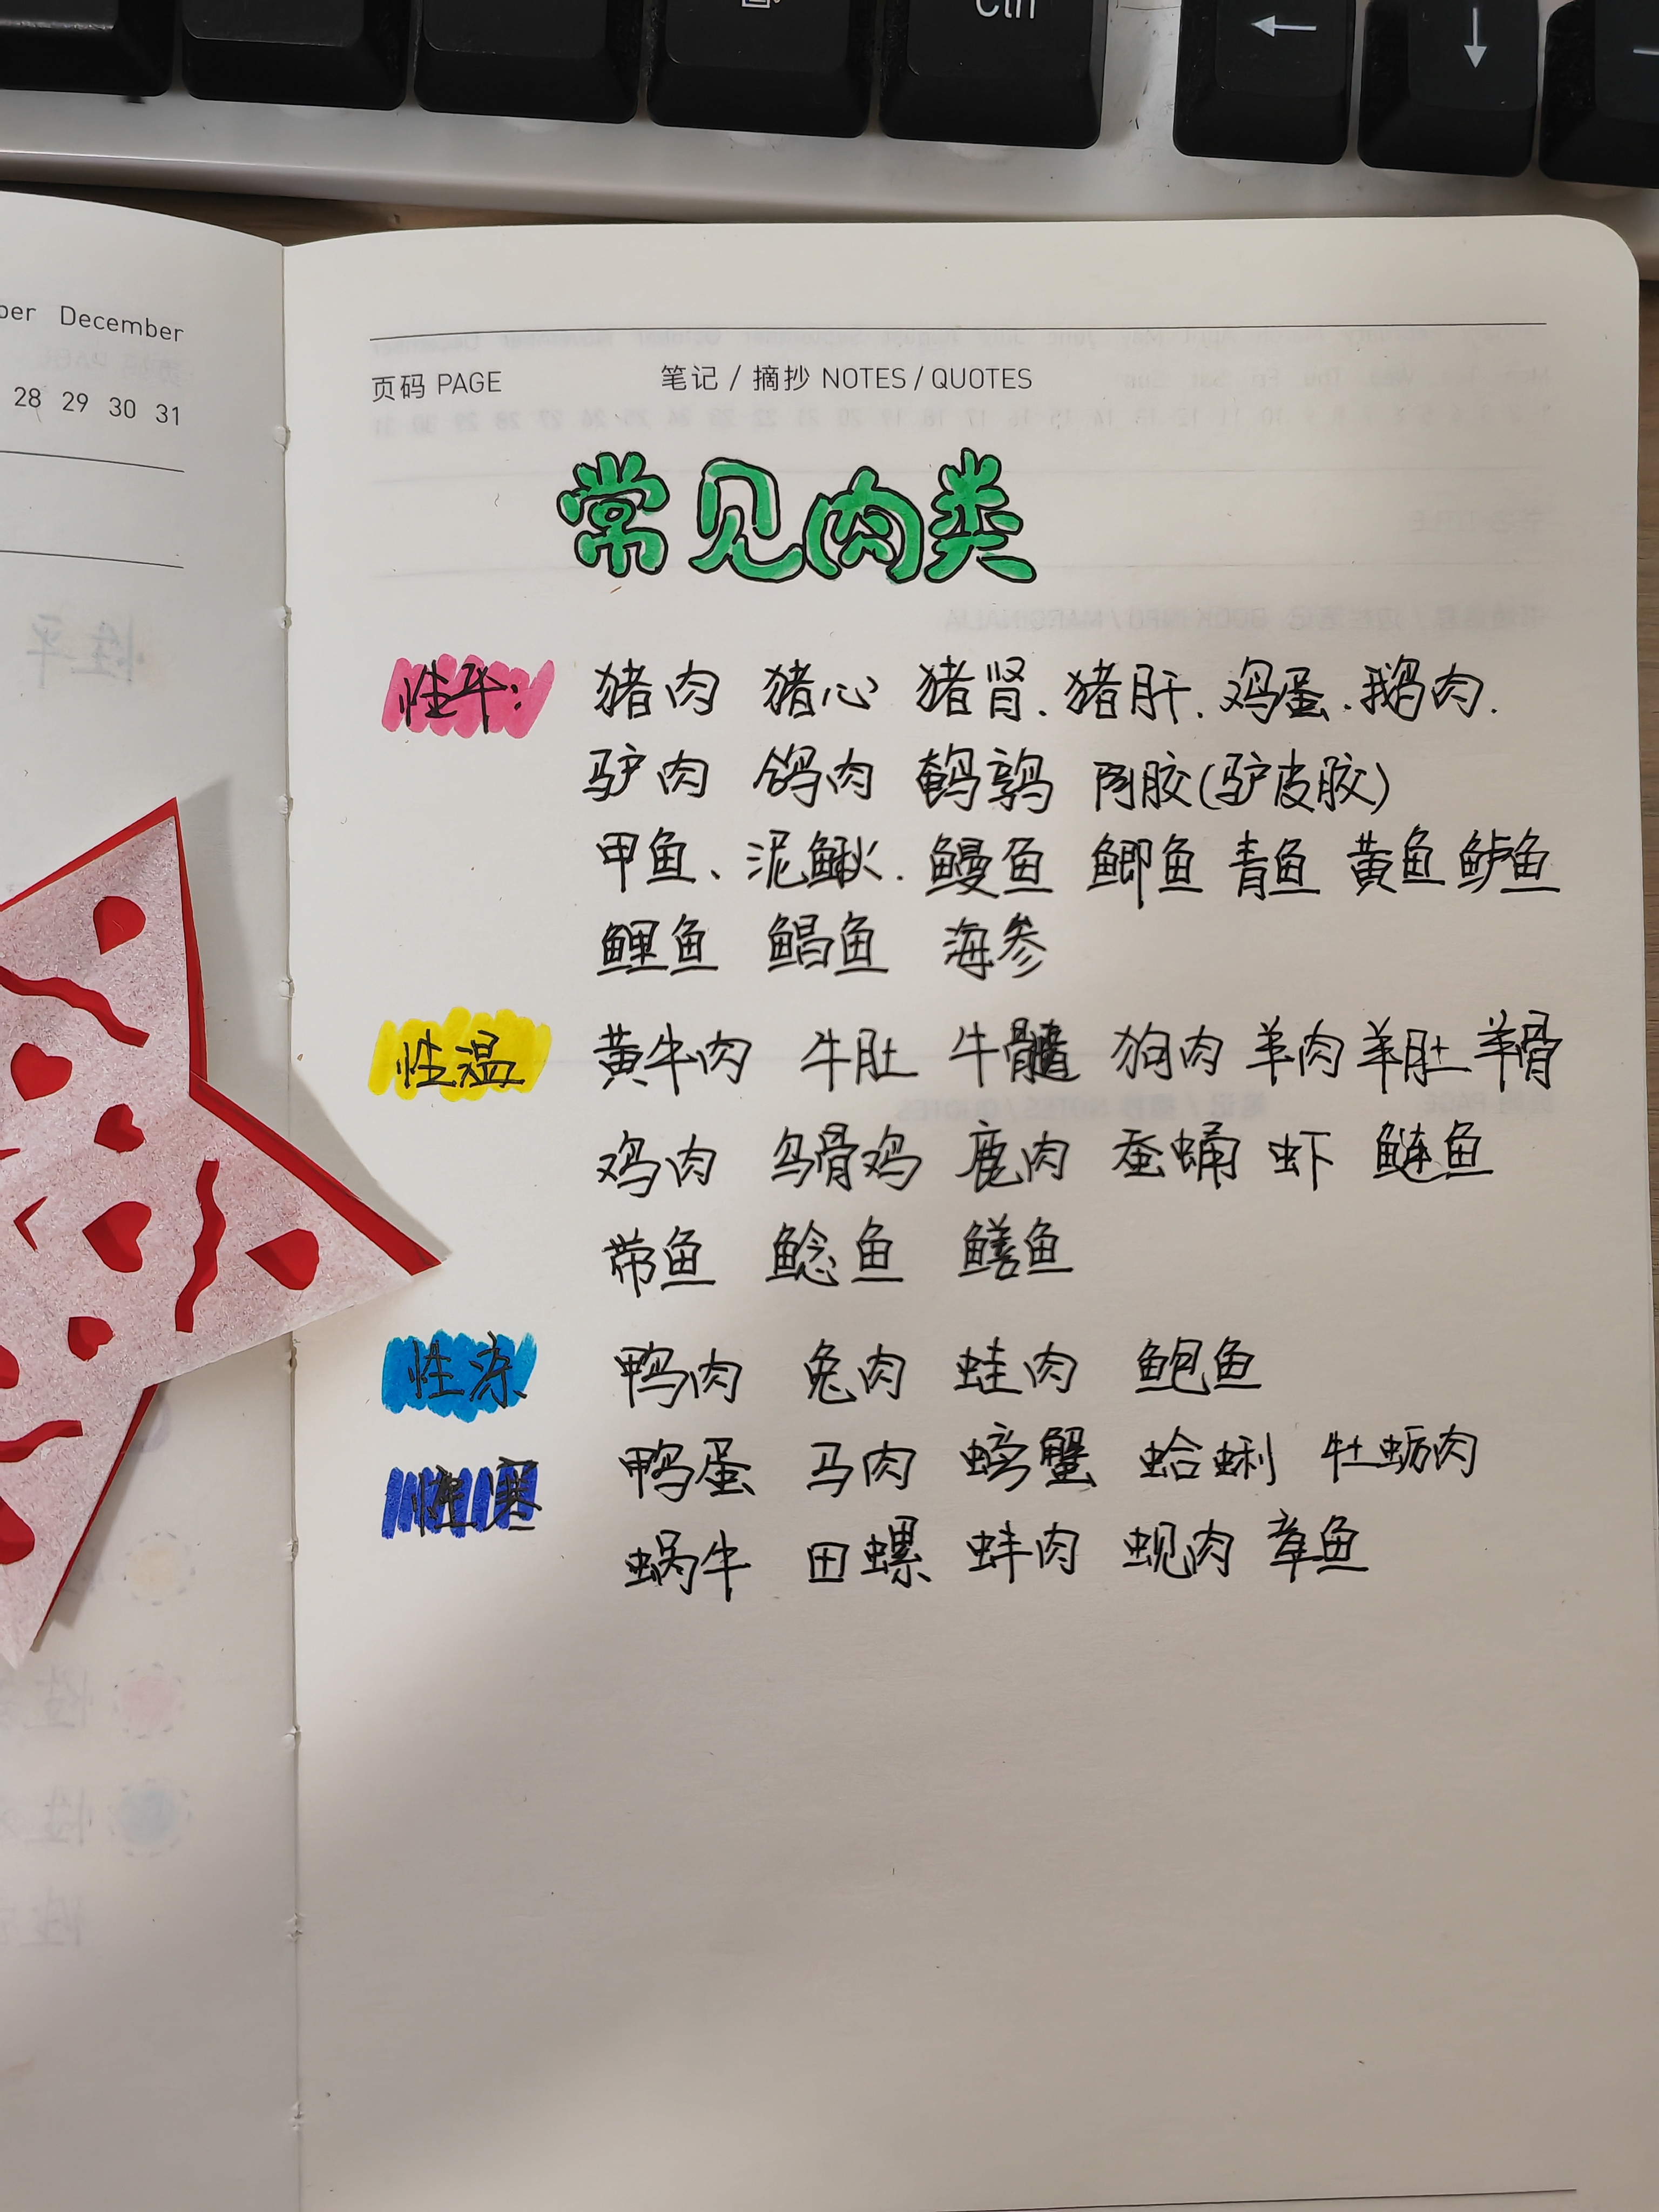 Ctrl
← ↓
December
28 29 30 31
页码 PAGE 笔记 / 摘抄 NOTES / QUOTES
常见肉类
性平: 猪肉 猪心 猪肾、猪肝、鸡蛋、鹅肉.
驴肉 鸽肉 鹌鹑 阿胶(驴皮胶)
甲鱼、泥鳅、鳗鱼 鲫鱼 青鱼 黄鱼 鲈鱼
鲤鱼 鲳鱼 海参
性温 黄牛肉 牛肚 牛髓 狗肉 羊肉 羊肚 羊骨
鸡肉 乌骨鸡 鹿肉 蚕蛹 虾 鲢鱼
带鱼 鲶鱼 鳝鱼
性凉 鸭肉 兔肉 蛙肉 鲍鱼
性寒 鸭蛋 马肉 螃蟹 蛤蜊 牡蛎肉
蜗牛 田螺 蚌肉 蚬肉 章鱼